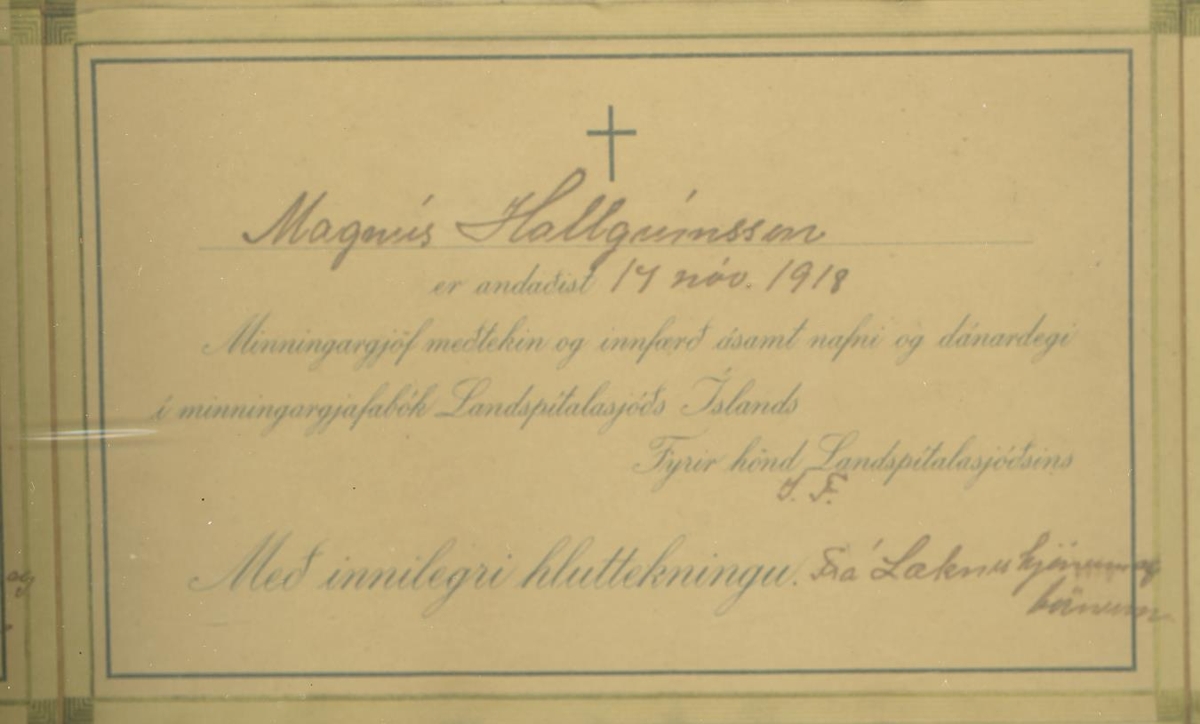 Magnús Hallgrímsson
er andaðist 14 nóv. 1918
Minningargjöf meðtekin og innfærð ásamt nafni og dánardegi
í minningargjafabók Landspítalasjóðs Íslands
Fyrir hönd Landspítalasjóðsins
I. F.
Með innilegri hluttekningu. Frá Læknishjónunum og
börnum